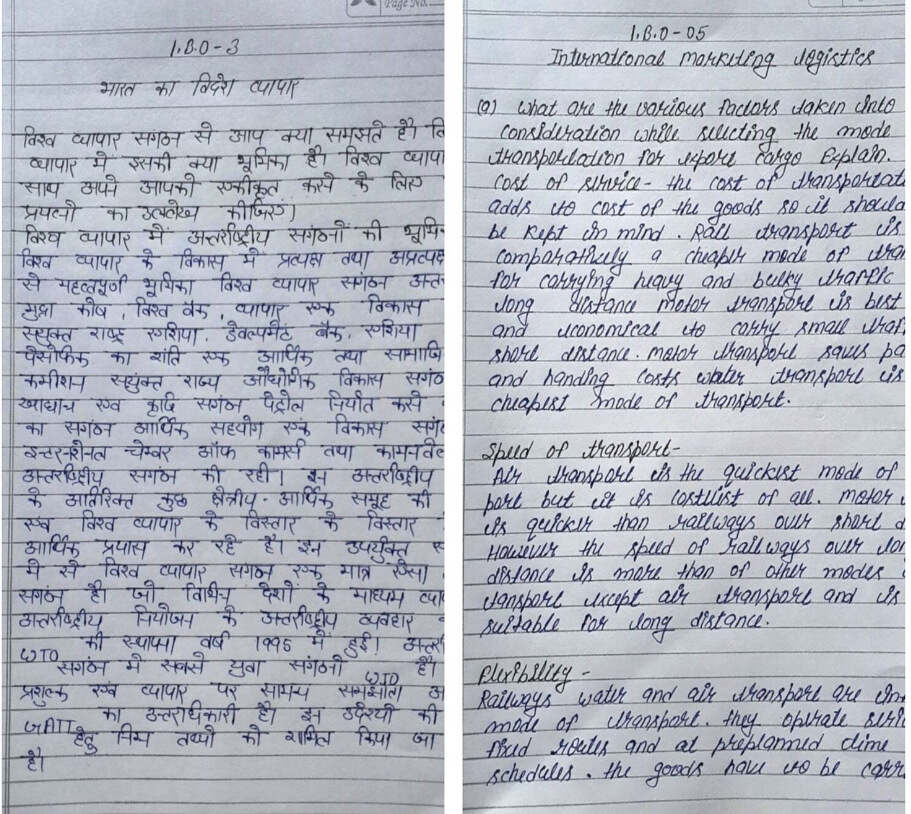 Page No.
I.B.O - 3
भारत का विदेश व्यापार
विश्व व्यापार सगठन से आप क्या समझते है। वि
व्यापार मे इसकी क्या भूमिका है। विश्व व्यापा
साथ अपने आपको एकीकृत करने के लिए
प्रयत्नो का उल्लेख कीजिए।
विश्व व्यापार में अन्तर्राष्ट्रीय सगंठनों की भूमि
विश्व व्यापार के विकास में प्रत्यक्ष तथा अप्रत्यक्ष
से महत्वपूर्ण भूमिका विश्व व्यापार सगंठन अन्त
मुद्रा कोष, विश्व बैंक, व्यापार एक विकास
सयुक्त राष्ट्र एशिया. डेवलपमेंट बैंक, एशिया
पैसीफिक का शांति एक आर्थिक तथा सामाजि
कमीशन सयुंक्त राज्य औधोगिक विकास सगंठ
खाधान्न एव कृषि सगंठन पेट्रोल निर्यात करने
का सगंठन आर्थिक सहयोग एक विकास सगं
इन्टरनेशनल चेम्बर ऑफ कामर्स तथा कामनवेल
अन्तर्राष्ट्रीय सगंठन की रही। इन अन्तर्राष्ट्रीय
के अतिरिक्त कुछ क्षेत्रीय. आर्थिक समूह की
एव विश्व व्यापार के विस्तार के विस्तार
आर्थिक प्रयास कर रहे है। इन उपर्युक्त स
मे से विश्व व्यापार सगंठन एक मात्र ऐसा
सगंठन है। जो विभिन्न देशों के माध्यम व्या
अन्तर्राष्ट्रीय नियोजन के अन्तर्राष्ट्रीय व्यवहार
WTO की स्थापना वर्ष 1995 में हुई। अन्तर्रा
सगंठन मे सबसे युवा संगठनो WTO है।
प्रशुल्क एवं व्यापार पर सामन्य समझौता अ
GATT का उत्तराधिकारी है। इन उदेश्यो की
हेतु निम्न तथ्यो को शामिल किया जा
है।
I.B.O - 05
International marketing logistics
(Q) what are the various factors taken into
consideration while selecting the mode
transportation for expore cargo Explain.
cost of service - the cost of transportat
adds to cost of the goods so it should
be kept in mind. Rail transport is
comparatively a cheaper mode of tran
for carrying heavy and bulky traffic
long distance motor transport is best
and economical to carry small traf
short distance. motor transport saves pa
and handing costs water transport is
cheapest mode of transport.
Speed of transport -
Air transport is the quickest mode of
port but it is costliest of all. motor
is quicker than railways over short d
However the speed of railways over lon
distance is more than of other modes
transport except air transport and is
suitable for long distance.
Flexibility -
Railways water and air transport are in
mode of transport. they operate serv
fixed routes and at preplanned time
schedules. the goods have to be carr